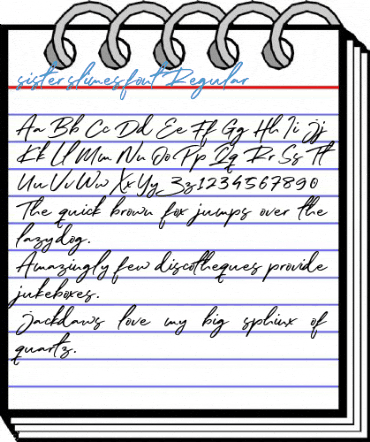 sisterslimesfont Regular
Aa Bb Cc Dd Ee Ff Gg Hh Ii Jj
Kk Ll Mm Nn Oo Pp Qq Rr Ss Tt
Uu Vv Ww Xx Yy Zz1234567890
The quick brown fox jumps over the
lazydog.
Amazingly few discotheques provide
jukeboxes.
Jackdaws love my big sphinx of
quartz.